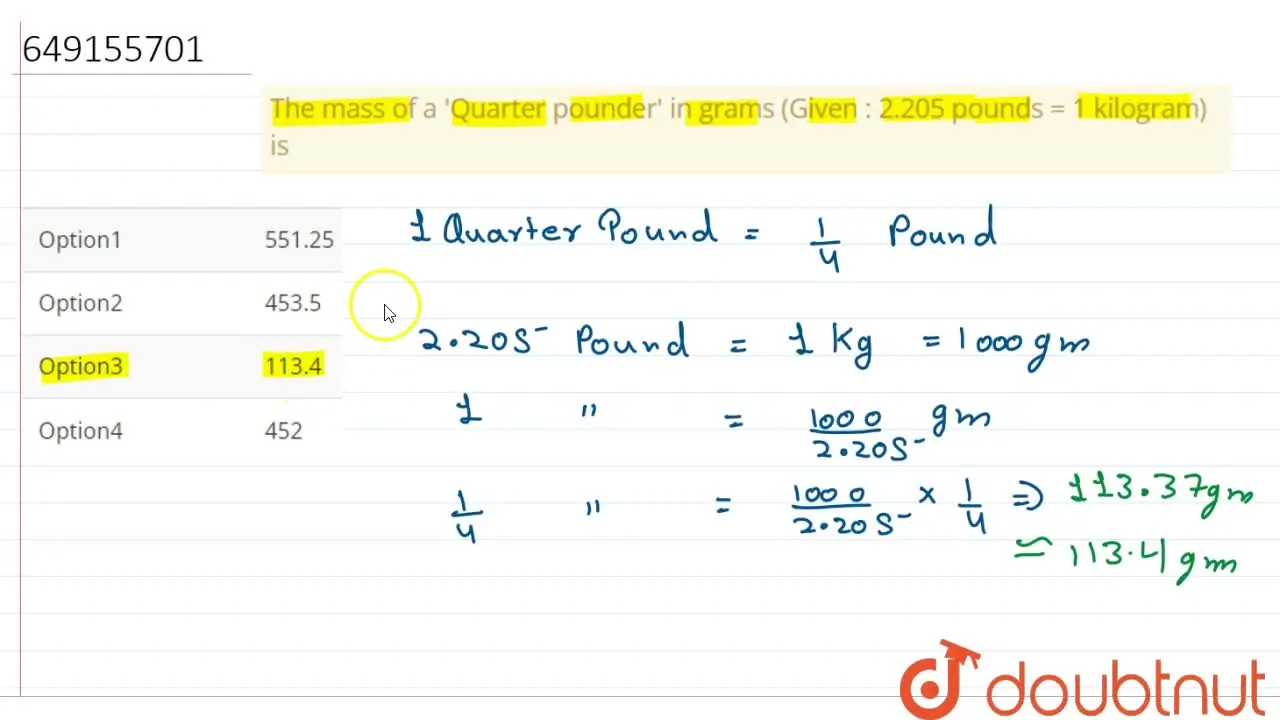 649155701
The mass of a 'Quarter pounder' in grams (Given : 2.205 pounds = 1 kilogram)
is
Option1 551.25
Option2 453.5
Option3 113.4
Option4 452
1 Quarter Pound = 1/4 Pound
2.205 Pound = 1 Kg = 1000 gm
1 " = 1000/2.205 gm
1/4 " = 1000/2.205 × 1/4 ⇒ 113.37gm
≃ 113.4 gm
doubtnut